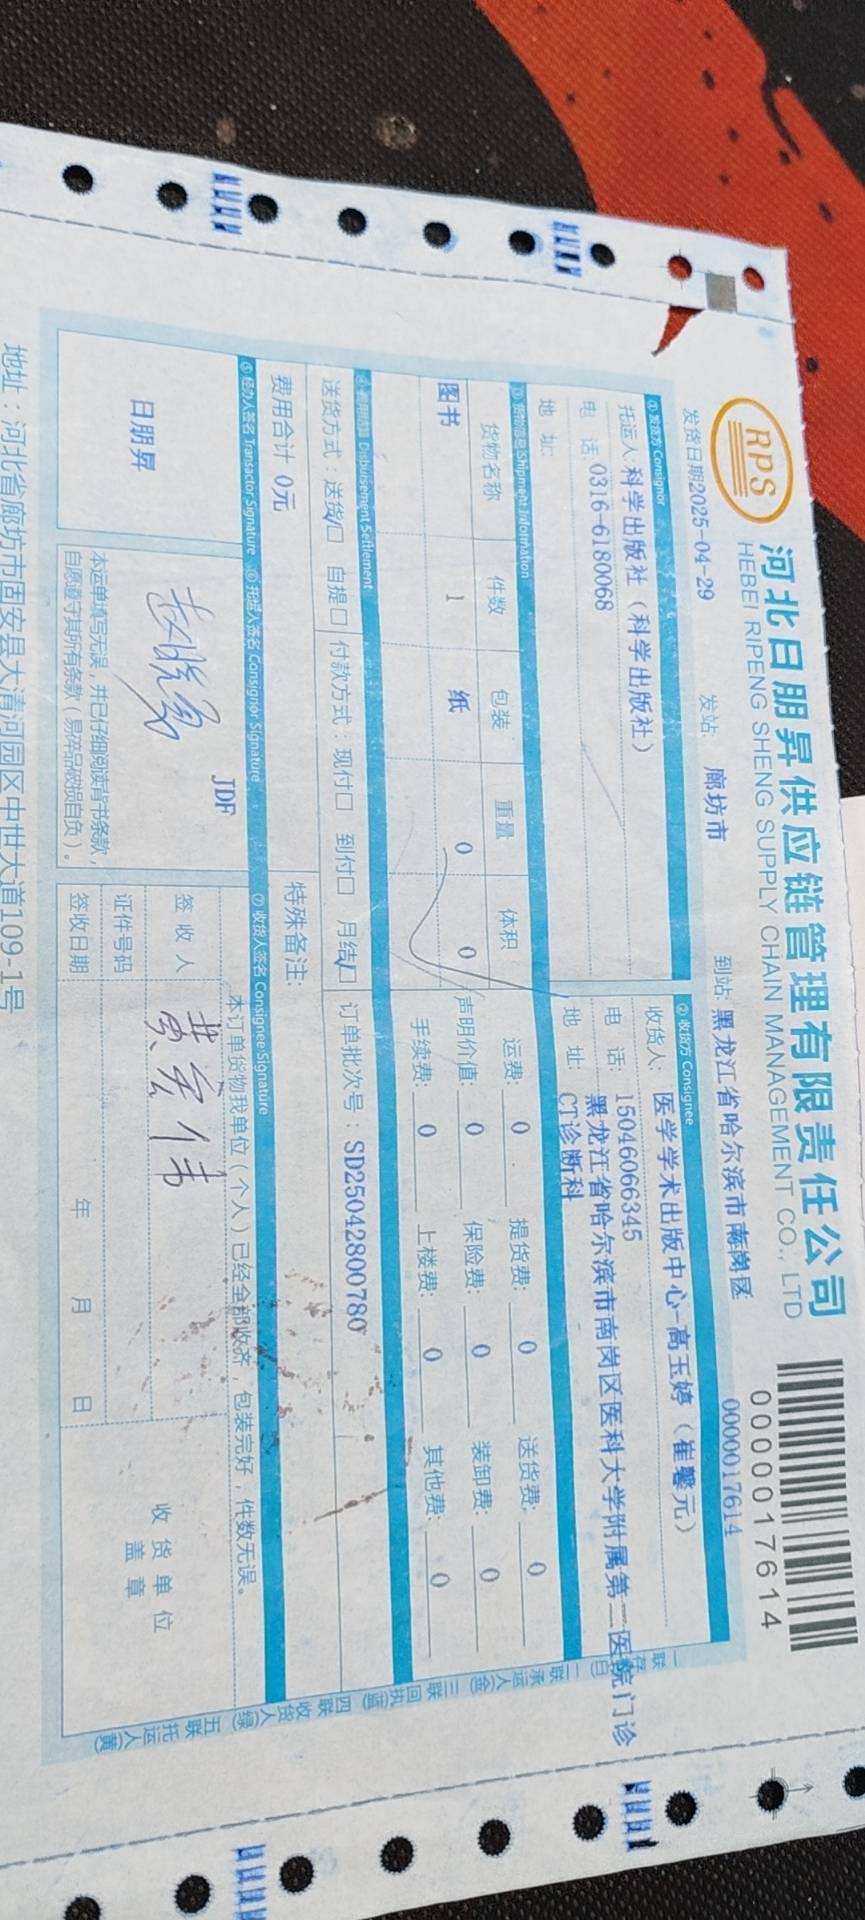 RPS
河北日朋昇供应链管理有限责任公司
HEBEI RIPENG SHENG SUPPLY CHAIN MANAGEMENT CO., LTD
0000017614
发货日期2025-04-29 发站: 廊坊市 到站: 黑龙江省哈尔滨市南岗区 0000017614
① 发货方 Consignor
托运人: 科学出版社（科学出版社）
电 话: 0316-6180068
地 址:
② 收货方 Consignee
收货人: 医学学术出版中心-高玉婷（崔馨元）
电 话: 15046066345
地 址: 黑龙江省哈尔滨市南岗区医科大学附属第二医院门诊
CT诊断科
③ 货物信息 Shipment Information
货物名称 件数 包装 重量 体积
图书 1 纸 0 0
运费: 0 提货费: 0 送货费: 0
声明价值: 0 保险费: 0 装卸费: 0
手续费: 0 上楼费: 0 其他费: 0
Disbursement Settlement
送货方式：送货☑ 自提□ 付款方式：现付□ 到付□ 月结☑ 订单批次号：SD25042800780
费用合计 0元 特殊备注:
⑤ 经办人签名 Transactor Signature
日朋昇
⑥ 托运人签名 Consignor Signature
JDF
本运单填写无误，并已仔细阅读背书条款，
自愿遵守其所有条款（易碎品破损自负）。
⑦ 收货人签名 Consignee Signature
本订单货物我单位（个人）已经全部收齐，包装完好，件数无误。
签 收 人 黄宏伟
证件号码
签收日期 年 月 日
收货单位
盖 章
联 承运人(金)
三联 回执(蓝)
四联 收货人(绿)
五联 托运人(黄)
地址：河北省廊坊市固安县大清河园区中世大道109-1号